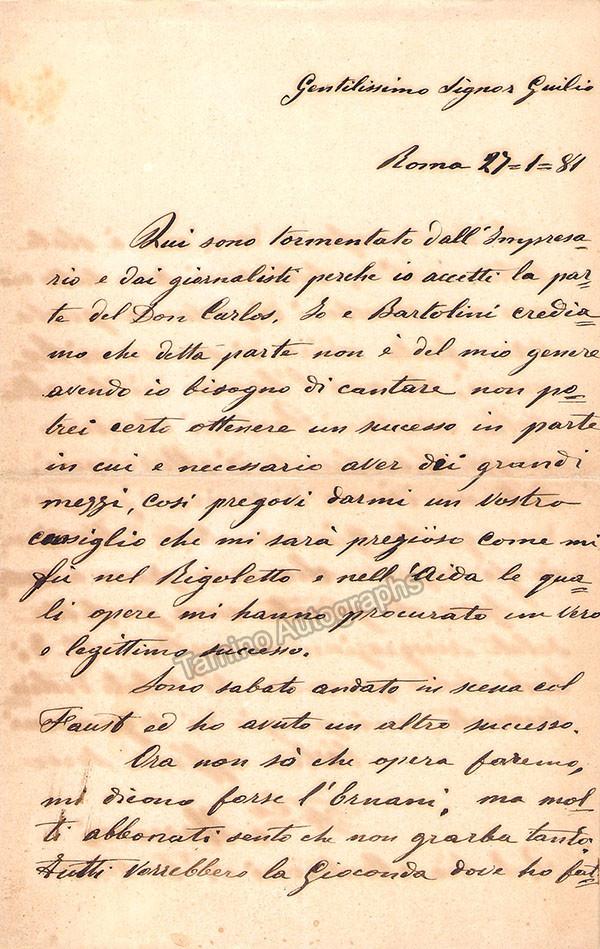 Gentilissimo Signor Giulio
Roma 27=1=81
Qui sono tormentato dall'Impresa=
rio e dai giornalisti perche io accetti la par=
te del Don Carlos. Io e Bartolini credia=
mo che detta parte non è del mio genere
avendo io bisogno di cantare non po=
trei certo ottenere un successo in parte
in cui e necessario aver dei grandi
mezzi, cosi pregovi darmi un vostro
consiglio che mi sarà pregioso come mi
fù nel Rigoletto e nell'Aida le qua=
li opere mi hanno procurato un vero
e legittimo successo.
Tamino Autographs
Sono sabato andato in scena col
Faust ed ho avuto un altro successo.
Ora non sò che opera faremo,
mi dicono forse l'Ernani, ma mol=
ti abbonati sento che non grarba tanto.
Tutti vorrebbero la Gioconda dove ho fat=